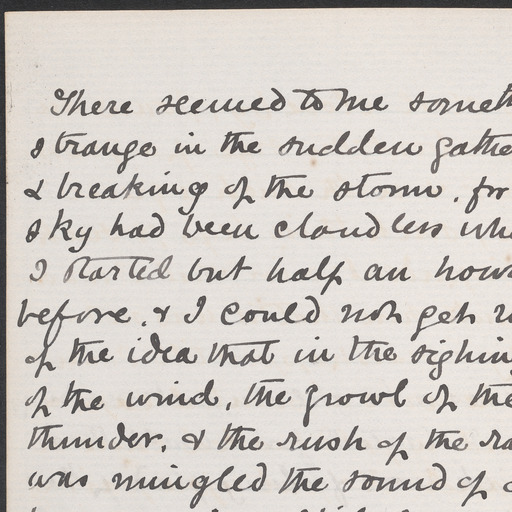 There seemed to me somet
strange in the sudden gathe
& breaking of the storm, for
sky had been cloudless wh
I started but half an hour
before, & I could not get r
of the idea that in the sighin
of the wind, the growl of the
thunder, & the rush of the ra
was mingled the sound of